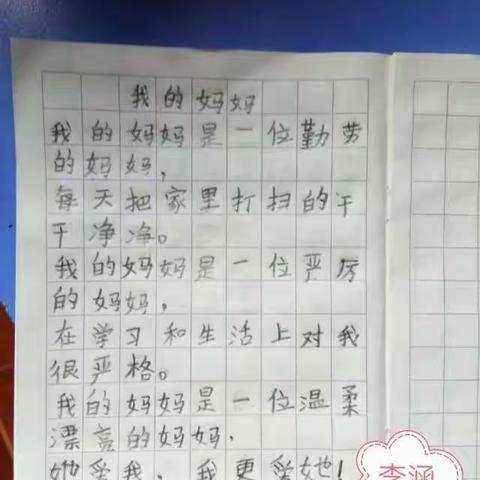 我的妈妈
我的妈妈是一位勤劳
的妈妈，
每天把家里打扫的干
干净净。
我的妈妈是一位严厉
的妈妈，
在学习和生活上对我
很严格。
我的妈妈是一位温柔
漂亮的妈妈，
她爱我，我更爱她！
李涵